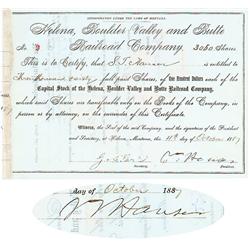 INCORPORATED UNDER THE LAWS OF MONTANA.
Helena, Boulder Valley and Butte
Railroad Company.
No. 9
3080 Shares
This is to Certify, that S. T. Hauser is entitled
to Three Thousand Eighty full paid Shares, of One Hundred Dollars each of the
Capital Stock of the Helena, Boulder Valley and Butte Railroad Company,
which said Shares are transferable only on the Books of the Company, in
person or by attorney, on the surrender of this Certificate.
Witness, the Seal of the said Company, and the signatures of the President
and Secretary, at Helena, Montana, this 11th day of October 1887
Secretary.
President.
day of October 1887
S T Hauser